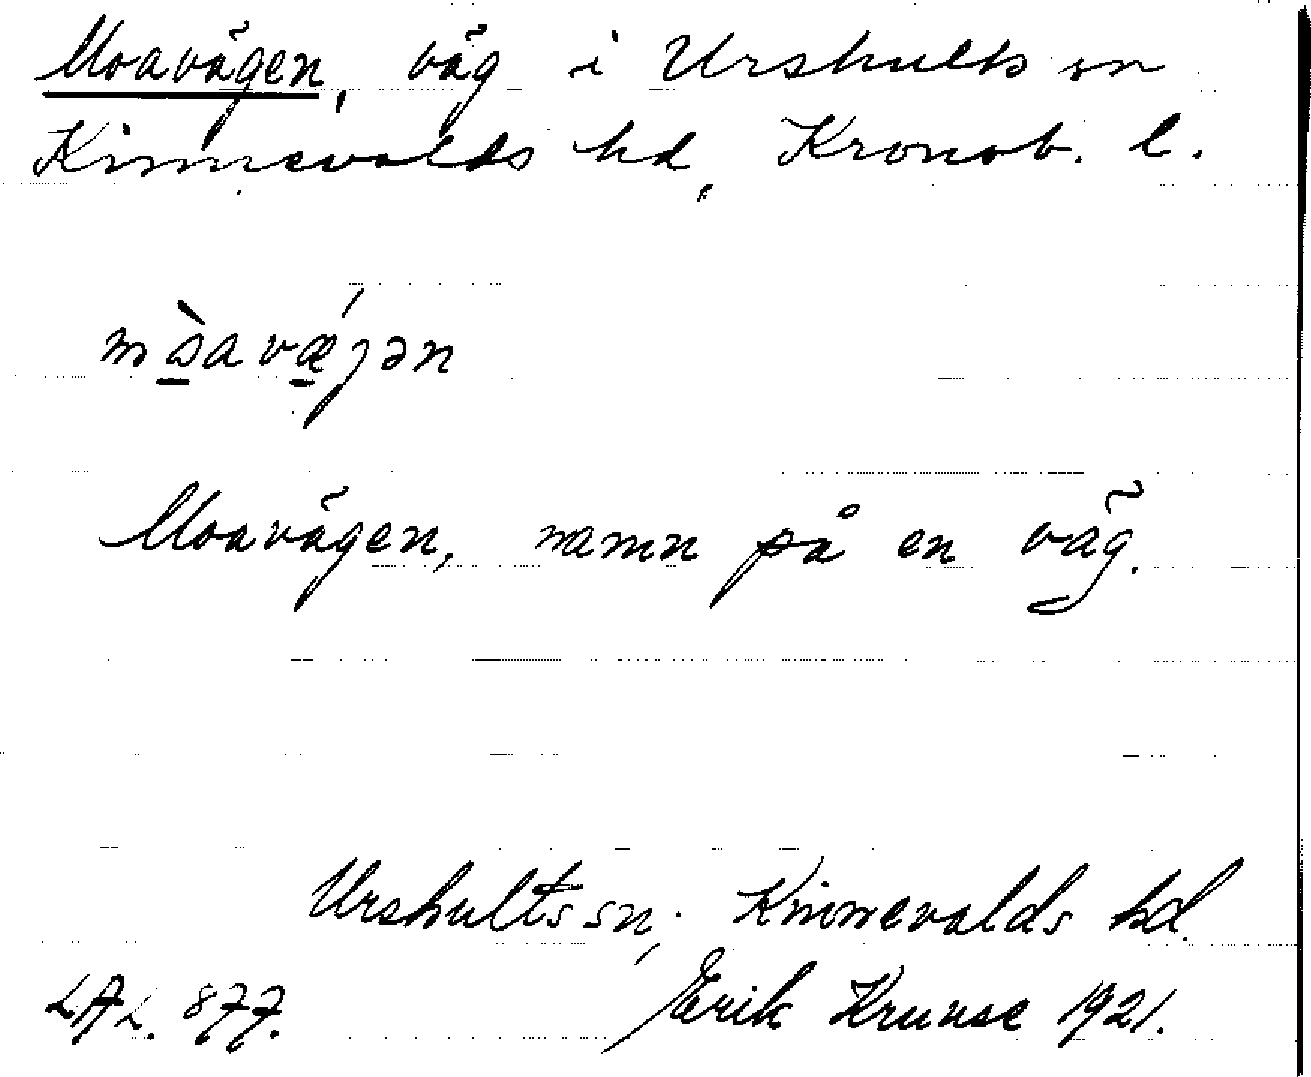 Moavägen, väg i Urshults sn
Kinnevalds hd, Kronob. l.
mɷ̀avǽjən
Moavägen, namn på en väg.
Urshults sn, Kinnevalds hd.
LAL. 877. Erik Kruuse 1921.